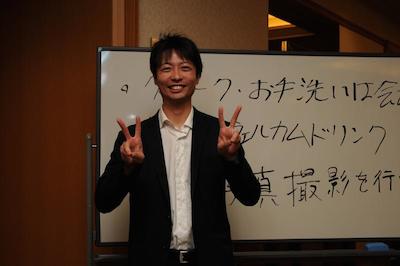 ・クローク・お手洗いは会
ウェルカムドリンク
写真撮影を行